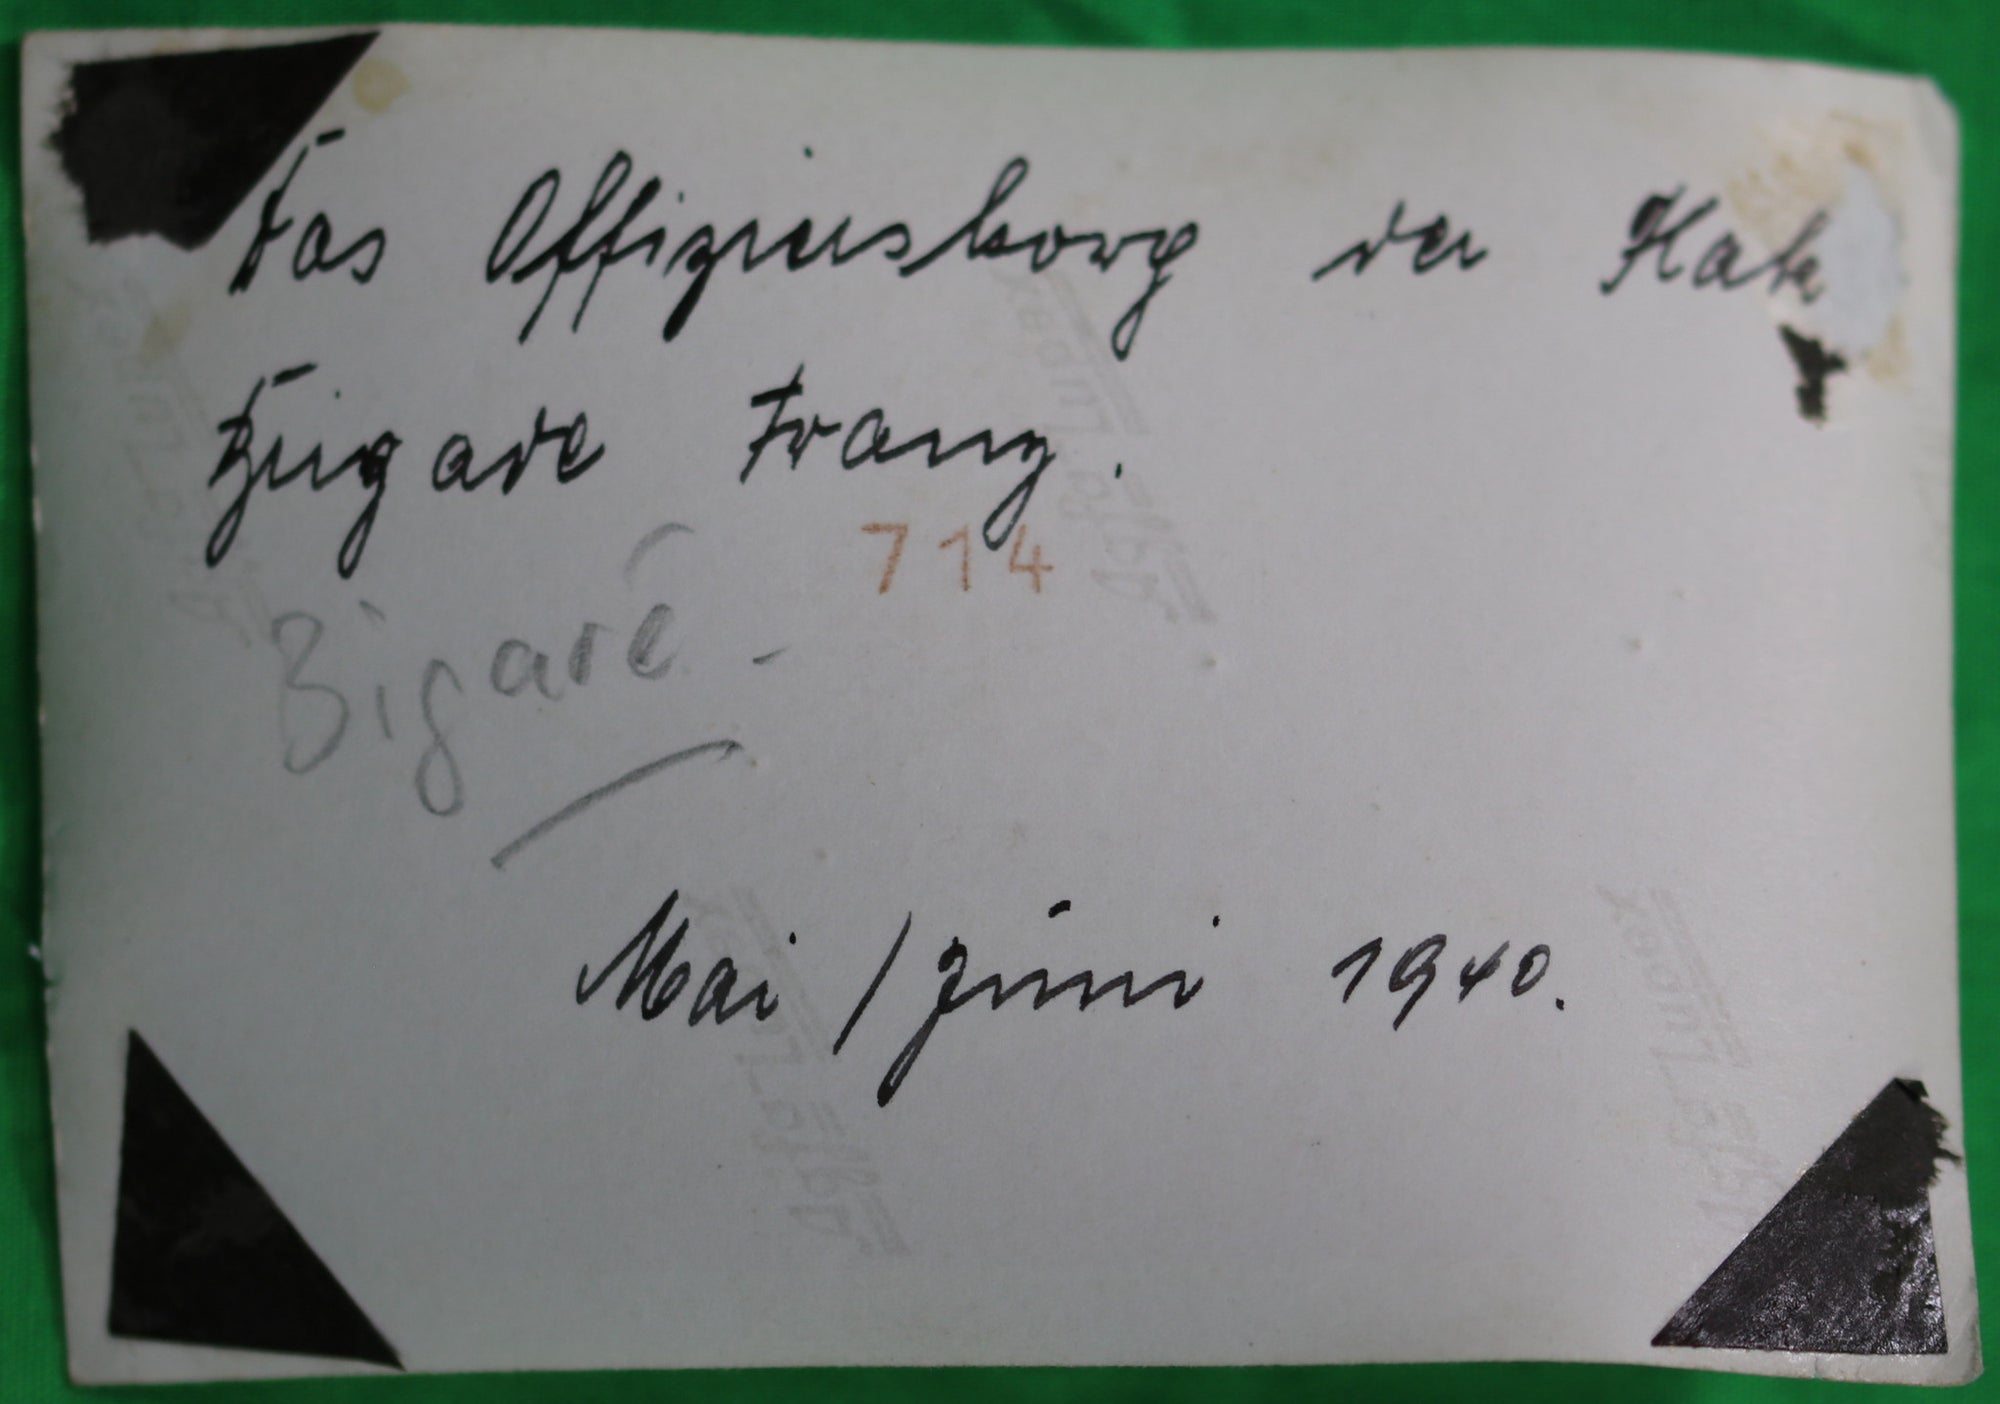 Das Offizierskorp der Kath
Bigade Franz.
714
Bigaré -
Mai / Juni 1940.